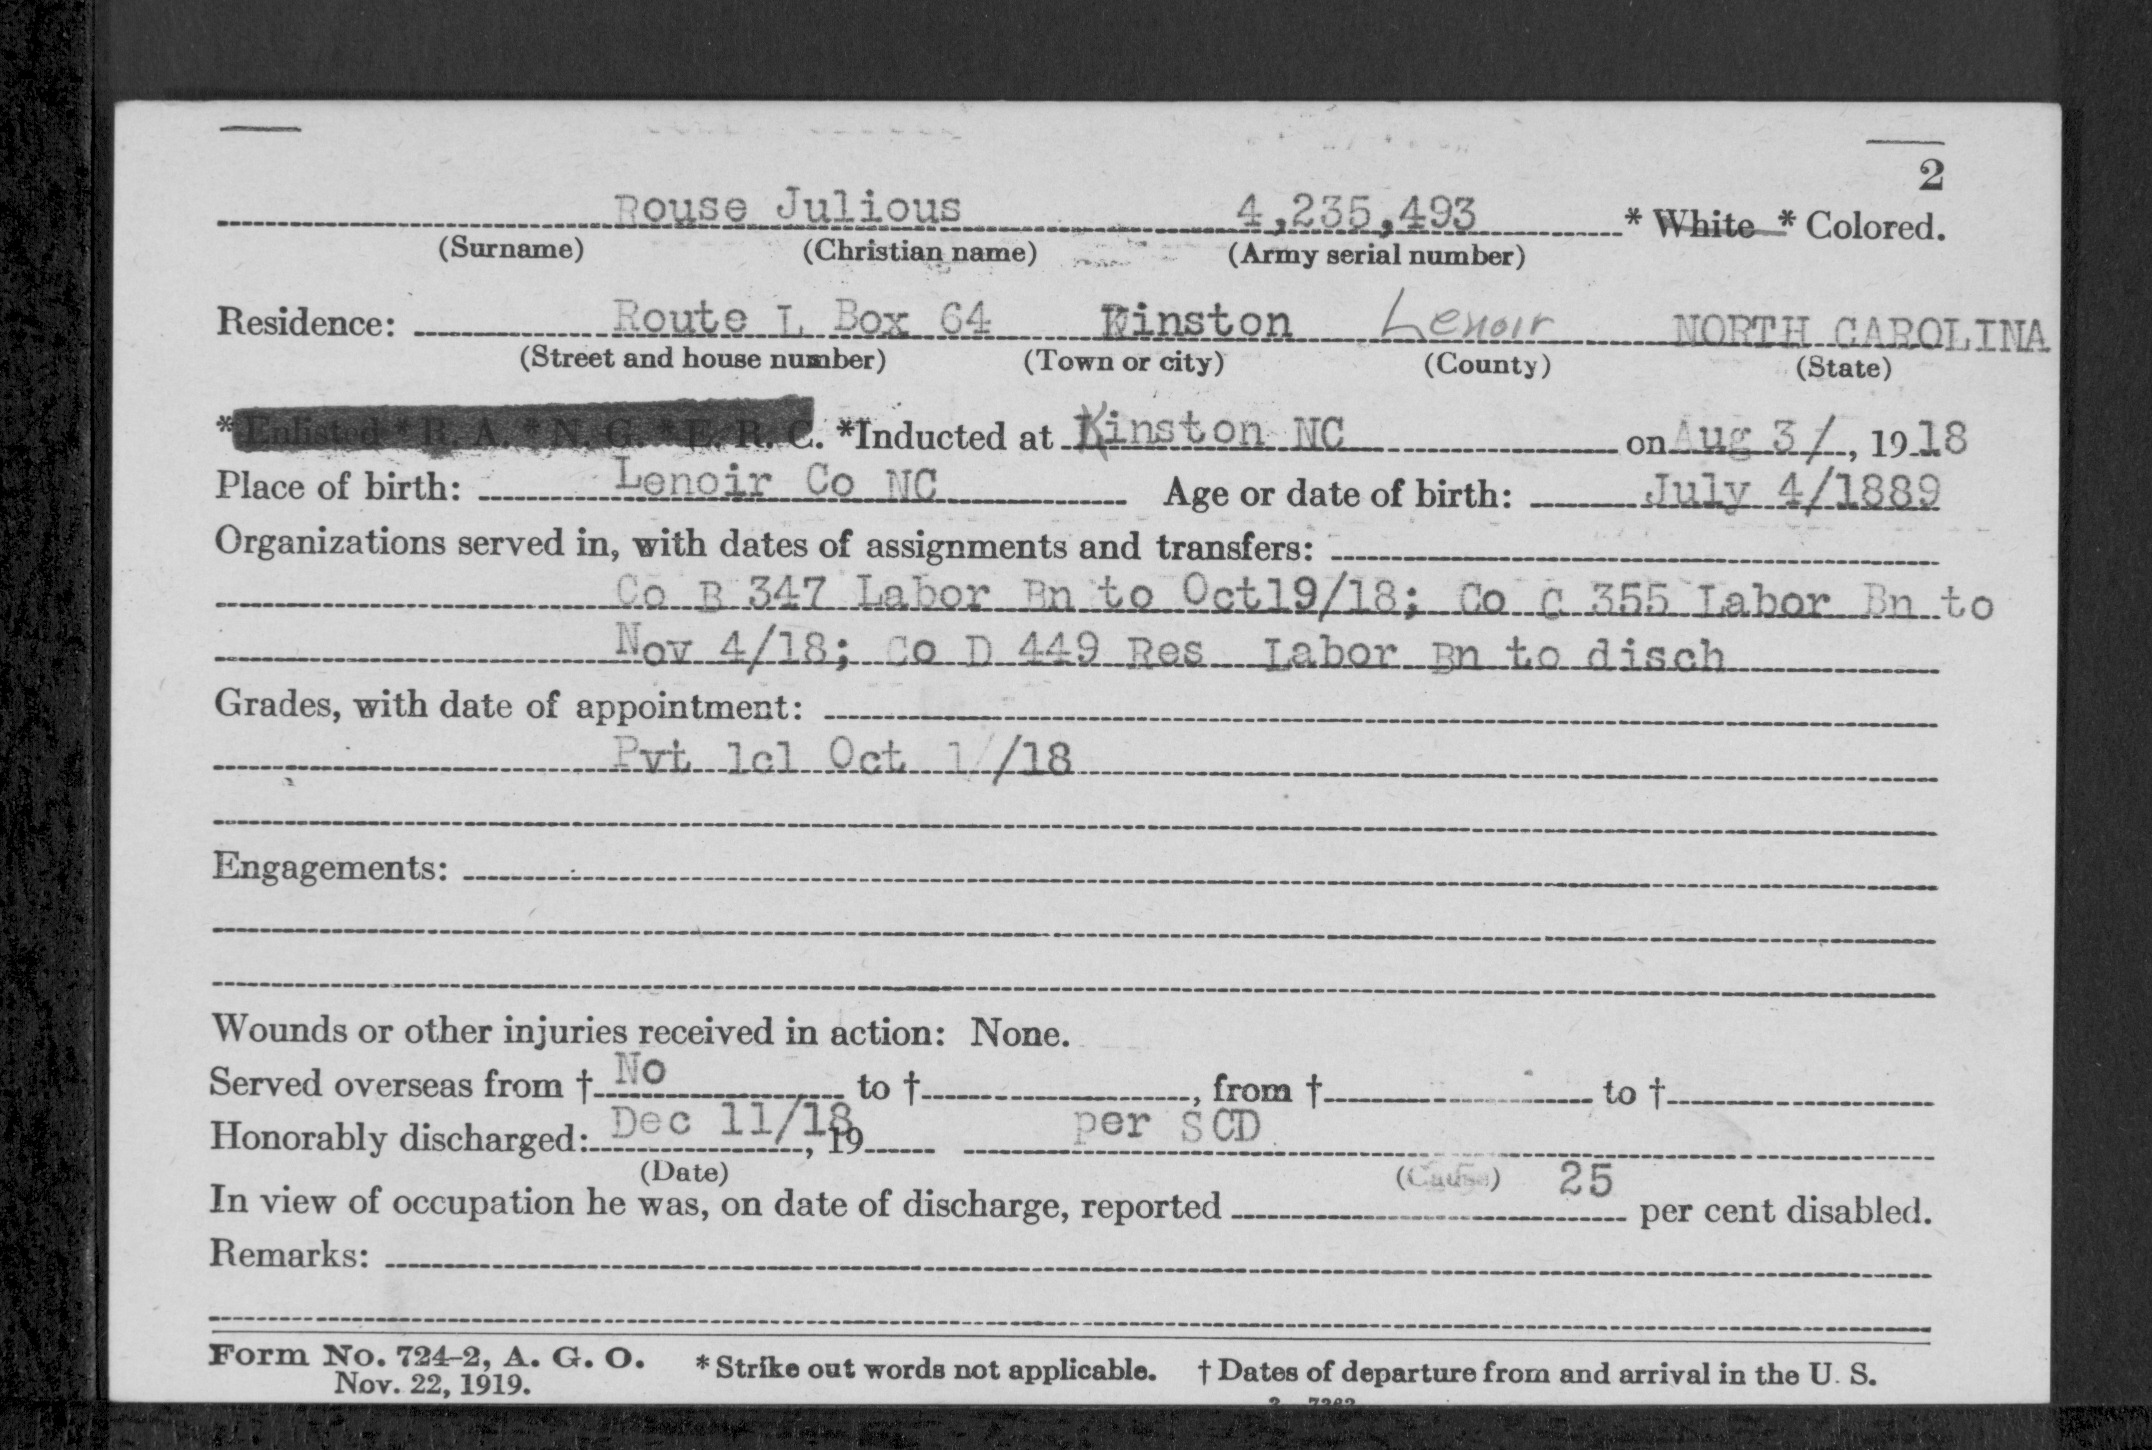 2
Rouse Julious 4,235,493 * White * Colored.
(Surname) (Christian name) (Army serial number)
Residence: Route L Box 64 Kinston Lenoir NORTH CAROLINA
(Street and house number) (Town or city) (County) (State)
*Enlisted * R. A. * N. G. * E. R. C. *Inducted at Kinston NC on Aug 3/, 1918
Place of birth: Lenoir Co NC Age or date of birth: July 4/1889
Organizations served in, with dates of assignments and transfers:
Co B 347 Labor Bn to Oct19/18; Co C 355 Labor Bn to
Nov 4/18; Co D 449 Res Labor Bn to disch
Grades, with date of appointment:
Pvt 1cl Oct 1/ /18
Engagements:
Wounds or other injuries received in action: None.
Served overseas from † No to †, from † to †
Honorably discharged: Dec 11/18, 19 per SCD
(Date) (Cause)
In view of occupation he was, on date of discharge, reported 25 per cent disabled.
Remarks:
Form No. 724-2, A. G. O. * Strike out words not applicable. † Dates of departure from and arrival in the U. S.
Nov. 22, 1919.